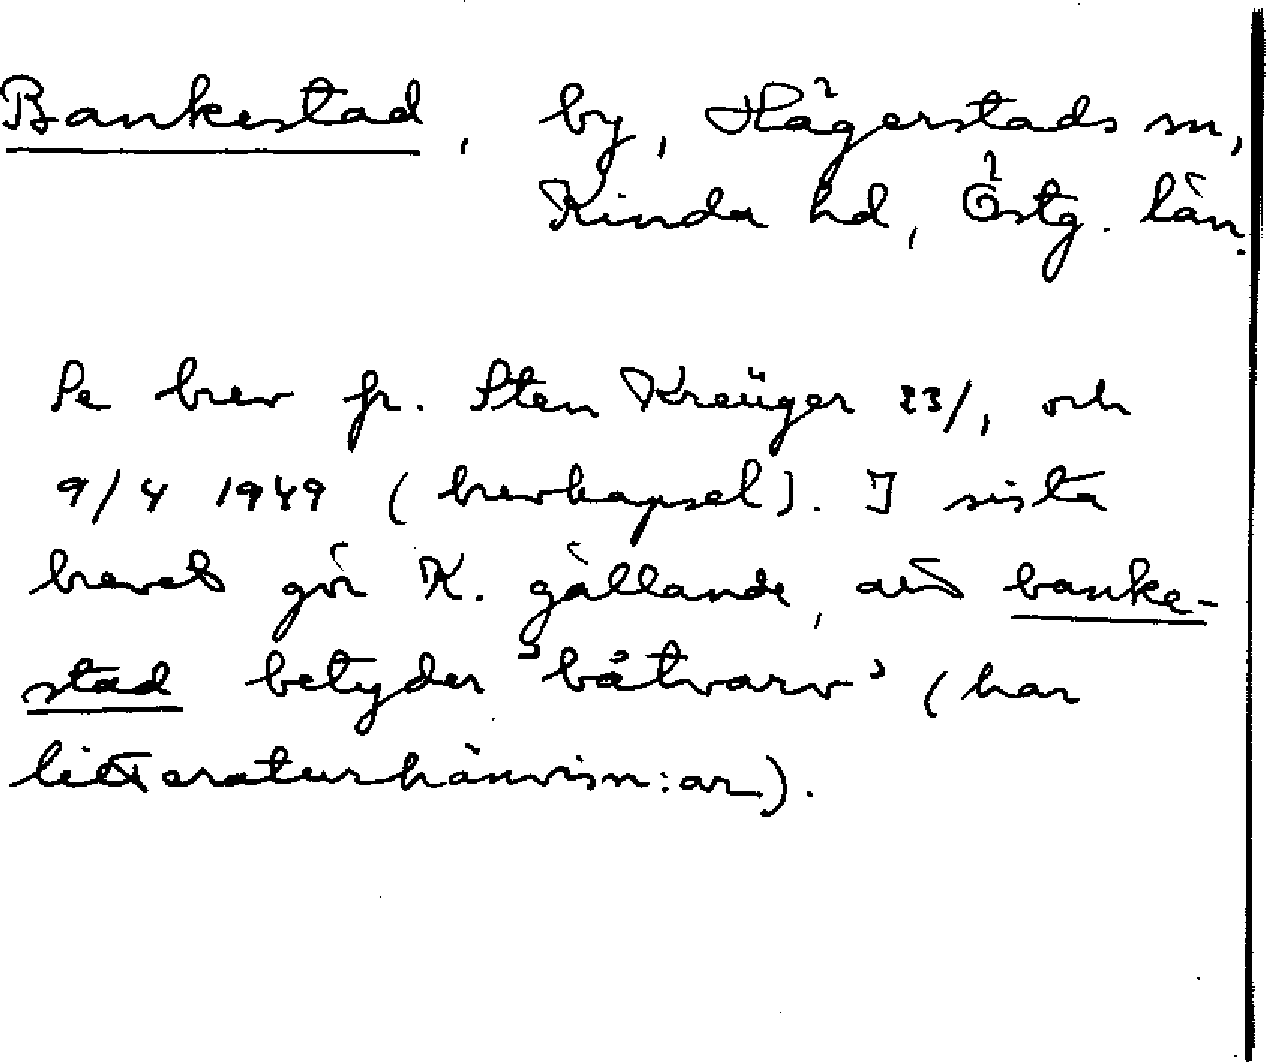 Bankestad, by, Hägerstads sn,
Kinda hd, Östg. län.
Se brev fr. Sten Kreüger 23/1 och
9/4 1949 (brevkapsel). I sista
brevet gör K. gällande, att banke-
stad betyder 'båtvarv' (har
litteraturhänvisn:ar).